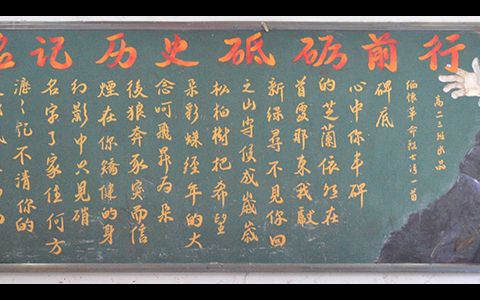 铭记历史砥砺前行
高二三班出品
缅怀革命烈士诗一首
碑底
心中你丰碑
的芝兰依然在
首 那来我献
新绿寻不见你回
之山守候成岁
松柏树把希望
朵彩蝶经年的大
念呵飛昇为朵
後狼奔豕突而信
煙在你矯健的身
幻影中只见
名字了家住何方
記不清你的